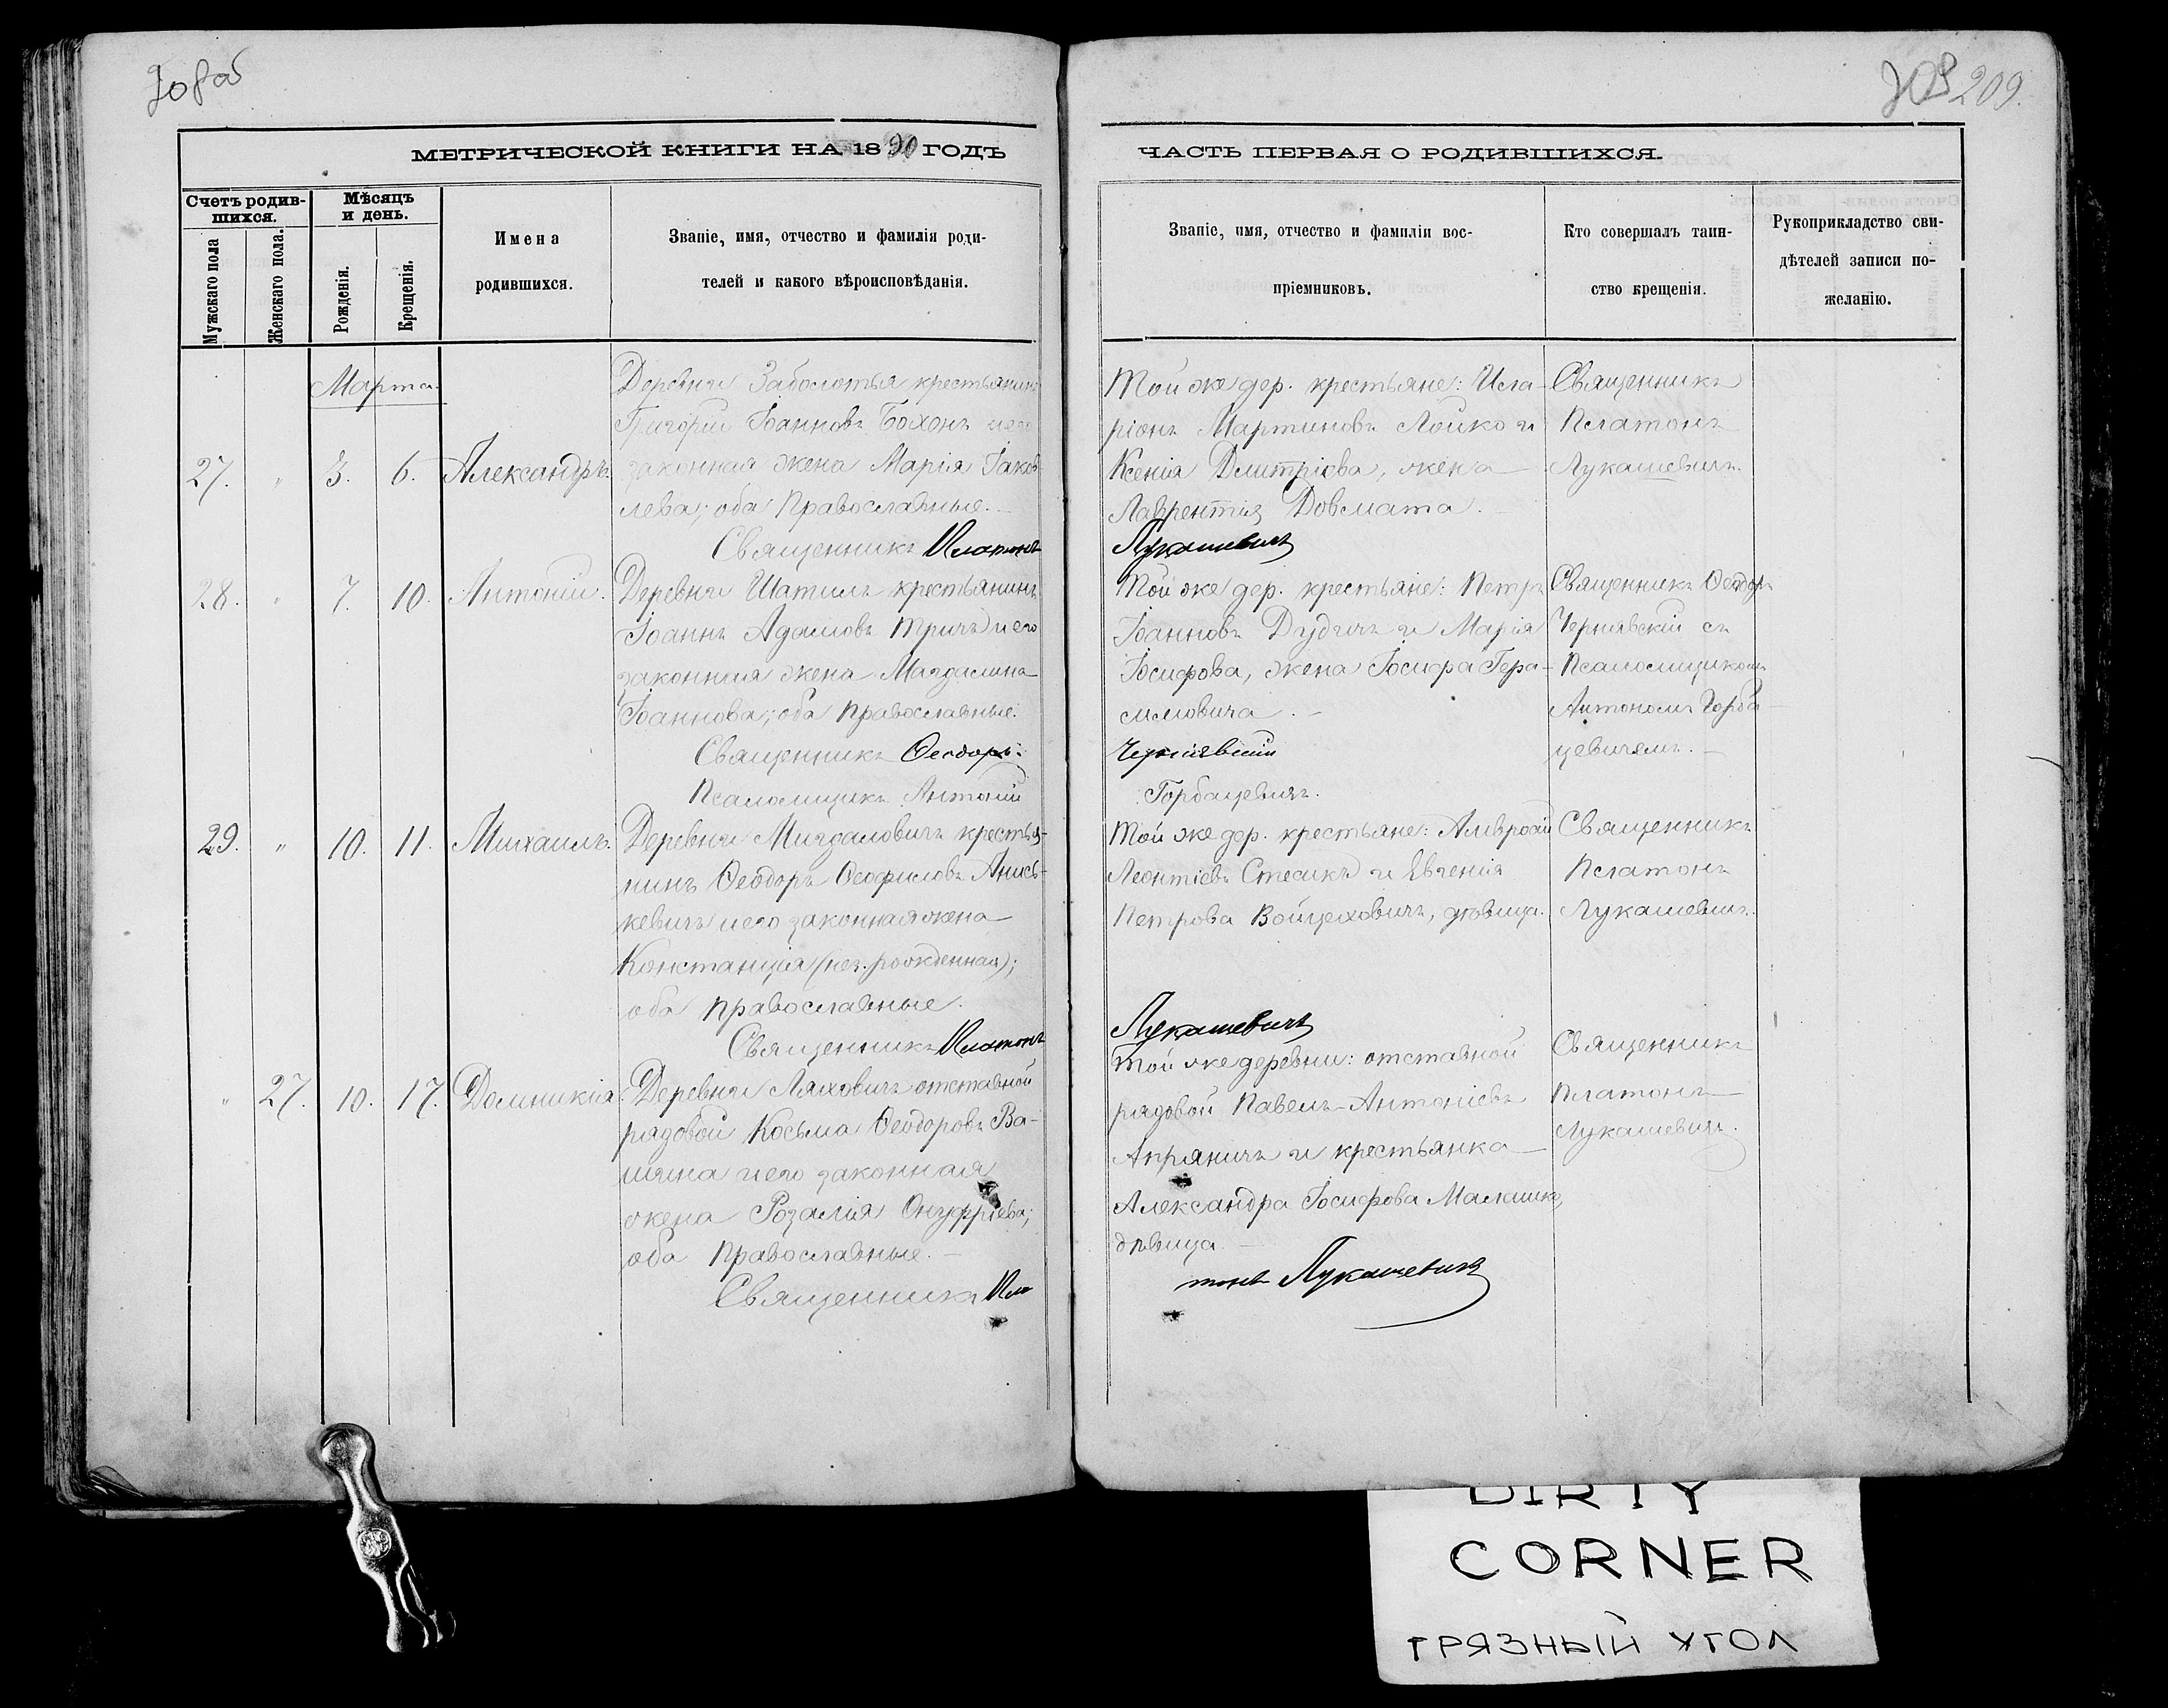 209.
МЕТРИЧЕСКОЙ КНИГИ НА 1890 ГОДЪ
ЧАСТЬ ПЕРВАЯ О РОДИВШИХСЯ.
Счетъ родив-
шихся.
Мужскаго пола
Женскаго пола.
Мѣсяцъ
и день.
Рожденія.
Крещенія.
Имена
родившихся.
Званіе, имя, отчество и фамилія роди-
телей и какого вѣроисповѣданія.
Званіе, имя, отчество и фамиліи вос-
пріемниковъ.
Кто совершалъ таин-
ство крещенія.
Рукоприкладство сви-
дѣтелей записи по-
желанію.
Марта.
27. " 3. 6. Александръ.
Деревни Заболотья крестьянинъ
Григорій Іоанновъ Бохонъ и его
законная жена Марія Іаков
лева; оба Православные.
Священникъ Платонъ
Той же дер. крестьяне: Ила-
ріонъ Мартиновъ Лойко и
Ксенія Дмитріева, жена
Лаврентія Довмата.
Лукашевичъ
Священникъ
Платонъ
Лукашевичъ.
28. " 7. 10. Антоній.
Деревни Шатилъ крестьянинъ
Іоаннъ Адамовъ Тричъ и его
законная жена Магдалина
Іоаннова; оба Православные.
Священникъ Ѳеодоръ
Псаломщикъ Антоній
Той же дер. крестьяне: Петръ
Іоанновъ Дудичъ и Марія
Іосифова, жена Іосифа Гера-
симовича.
Чернявскій
Горбацевичъ.
Священникъ Ѳеодоръ
Чернявскій съ
Псаломщикомъ
Антономъ Горба-
цевичемъ.
29. " 10. 11. Михаилъ.
Деревни Мигдаловичъ крестья-
нинъ Ѳеодоръ Ѳеофиловъ Анись-
кевичъ и его законная жена
Констанція (нез. рожденная);
оба Православные.
Священникъ Платонъ
Той же дер. крестьяне: Амвросій
Леонтіевъ Стасикъ и Евгенія
Петрова Войцеховичъ, дѣвица.
Лукашевичъ
Священникъ
Платонъ
Лукашевичъ.
" 27. 10. 17. Домникія.
Деревни Ляховичъ отставной
рядовой Косьма Ѳеодоровъ Ва-
и его законная
жена Розалія Онуфріева;
оба Православные.
Священникъ Пла
Той же деревни: отставной
рядовой Павелъ Антоніевъ
Апряничъ и крестьянка
Александра Іосифова Малашко,
дѣвица
тонъ Лукашевичъ
Священникъ
Платонъ
Лукашевичъ.
DIRTY
CORNER
ГРЯЗНЫЙ УГОЛ